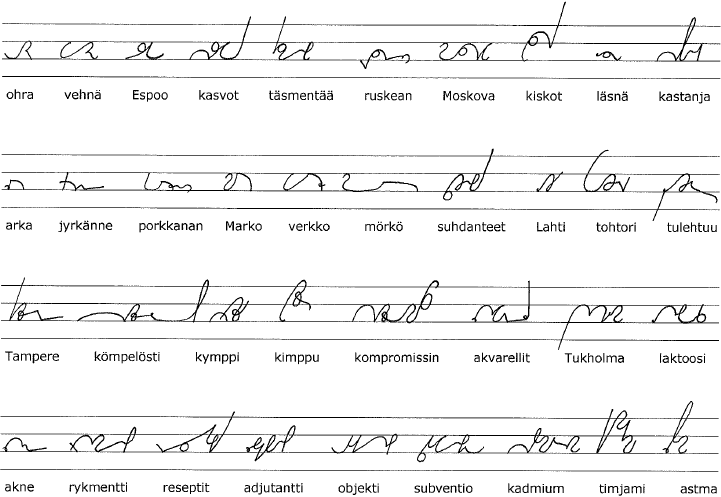 ohra vehnä Espoo kasvot täsmentää ruskean Moskova kiskot läsnä kastanja
arka jyrkänne porkkanan Marko verkko mörkö suhdanteet Lahti tohtori tulehtuu
Tampere kömpelösti kymppi kimppu kompromissin akvarellit Tukholma laktoosi
akne rykmentti reseptit adjutantti objekti subventio kadmium timjami astma